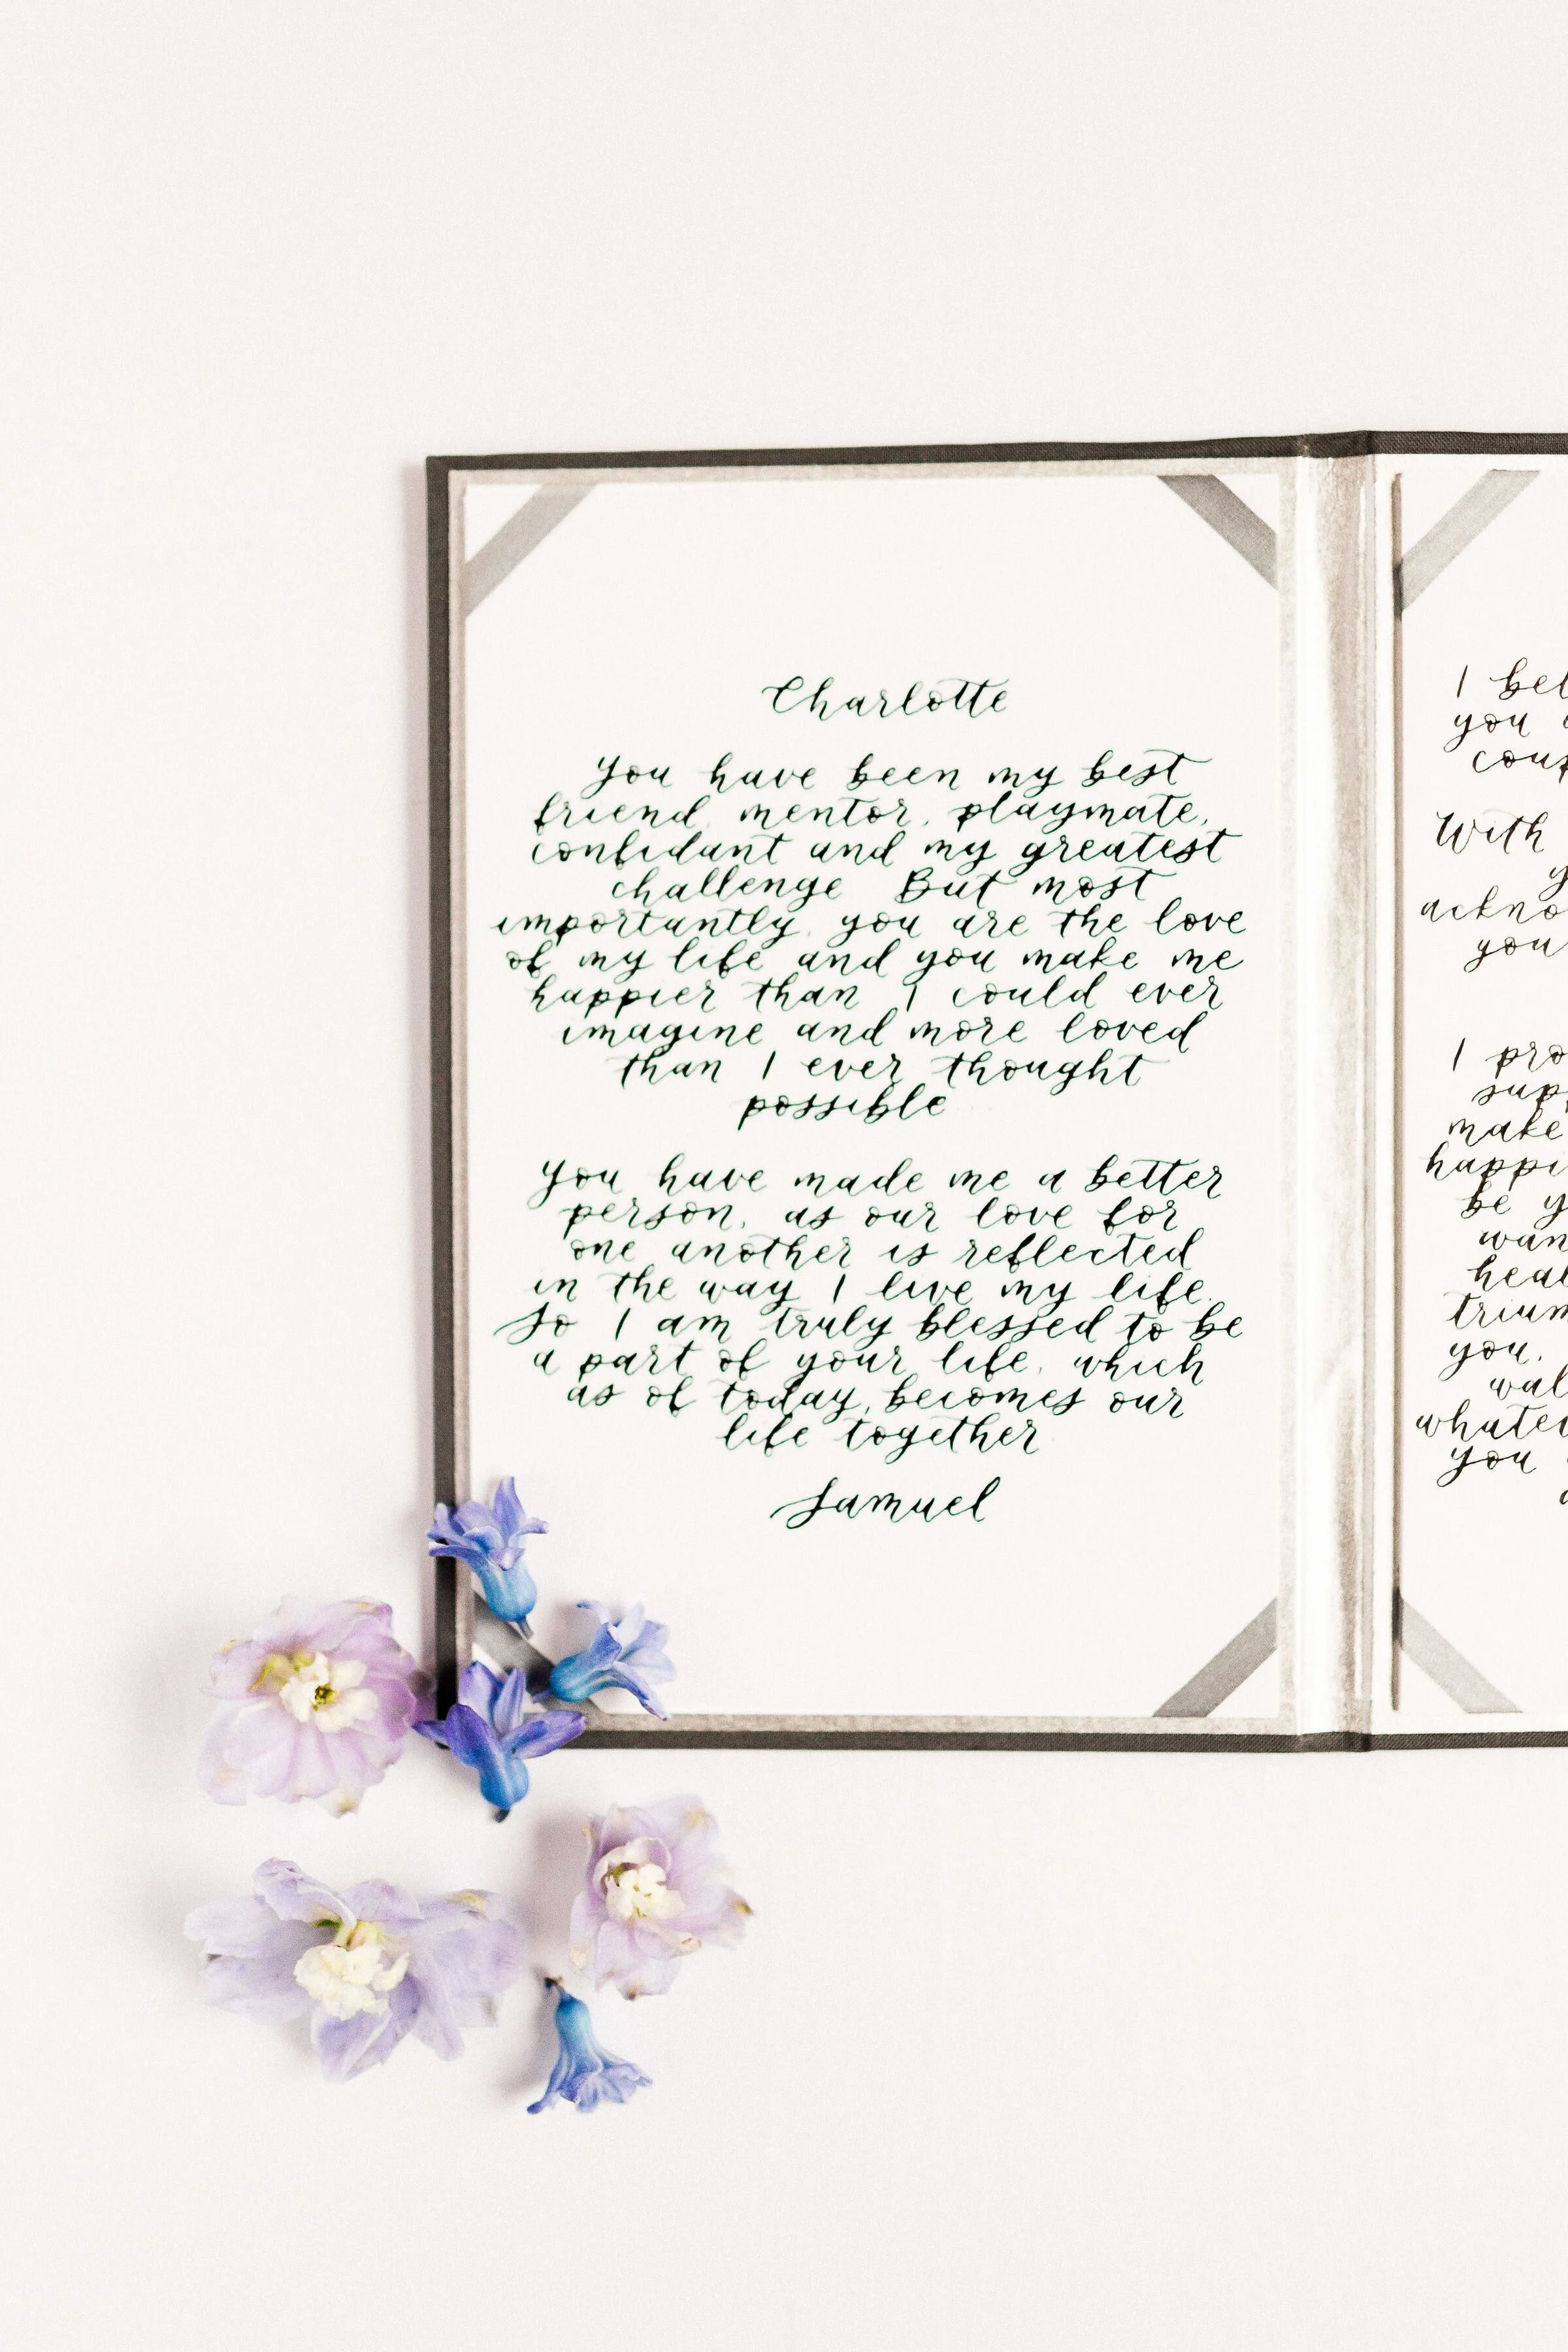 Charlotte
You have been my best
friend, mentor, playmate,
confidant and my greatest
challenge But most
importantly, you are the love
of my life and you make me
happier than I could ever
imagine and more loved
than I ever thought
possible
You have made me a better
person, as our love for
one another is reflected
in the way I live my life.
So I am truly blessed to be
a part of your life, which
as of today, becomes our
life together
Samuel
I
you
With
I
make
be
you.
you